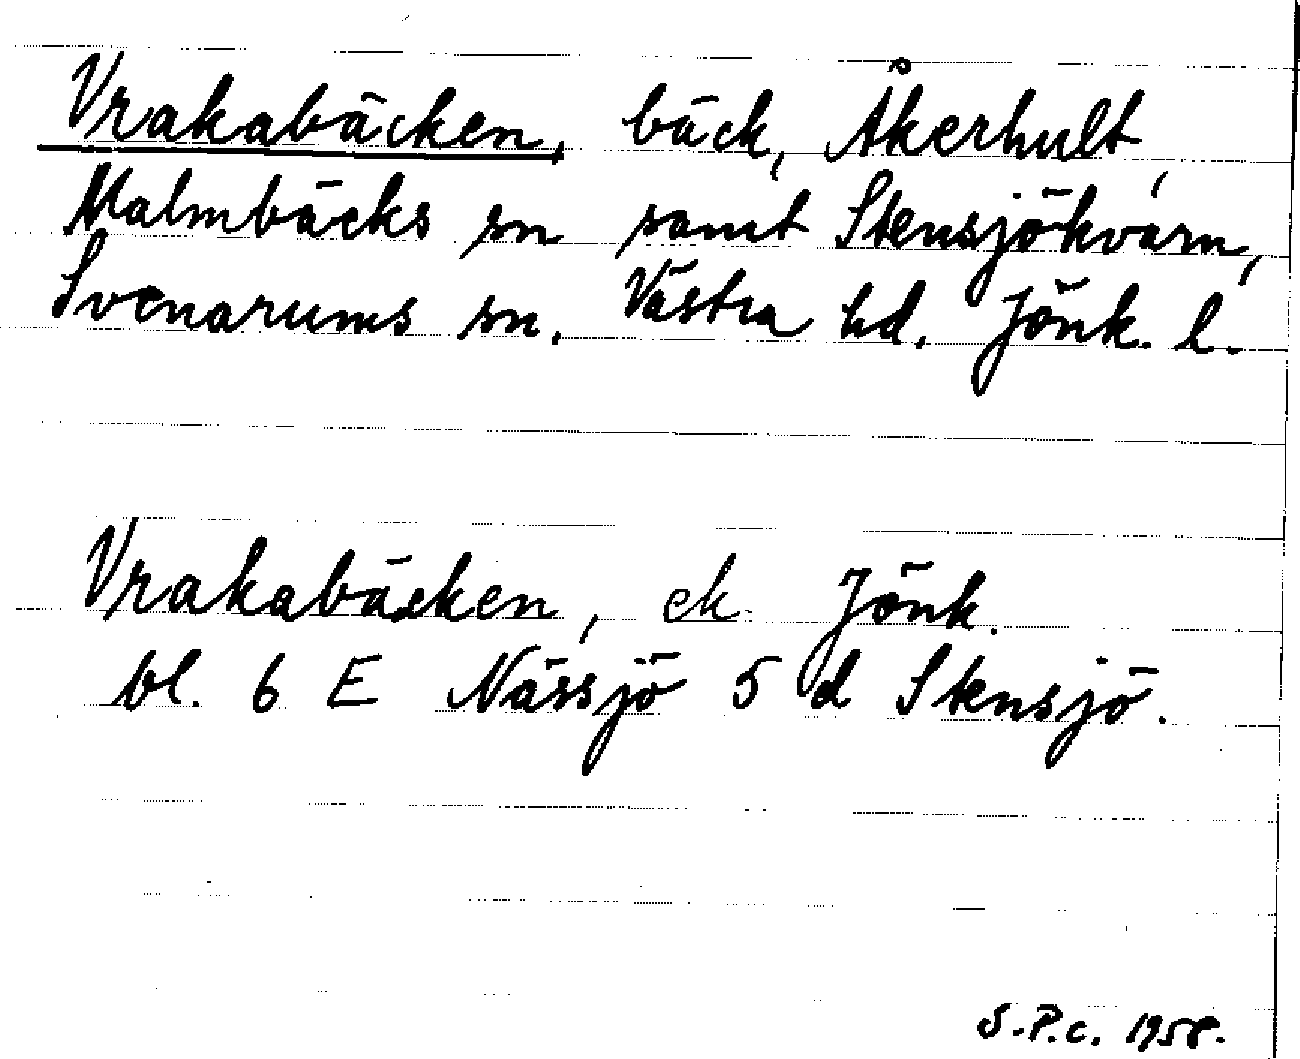 Vrakabäcken, bäck, Åkerhult,
Malmbäcks sn samt Stensjökvarn,
Svenarums sn. Västra hd. Jönk. l.
Vrakabäcken, ek. Jönk.
bl. 6 E Nässjö 5 d Stensjö.
S.P.c. 1958.